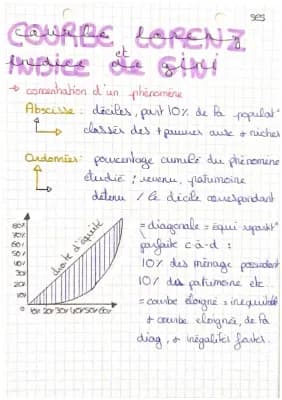 ses
COURBE LORENZ
et
INDICE de GINI
→ concentration d'un phénomène
Abscisse : déciles, part 10% de la populat°
classés des + pauvres aux + riches
Ordonnées : pourcentage cumulé du phénomène
étudié : revenu, patrimoine
détenu / le décile correspondant
80%
70%
60%
50%
40%
30%
20%
10%
0 10% 20% 30% 40% 50% 60%
droite d'équité
= diagonale = équi répartit°
parfaite c-à-d :
10% des ménage possèdent
10% du patrimoine etc
= courbe éloigné = inequité
+ courbe éloignée, de la
diag, + inégalités fortes.